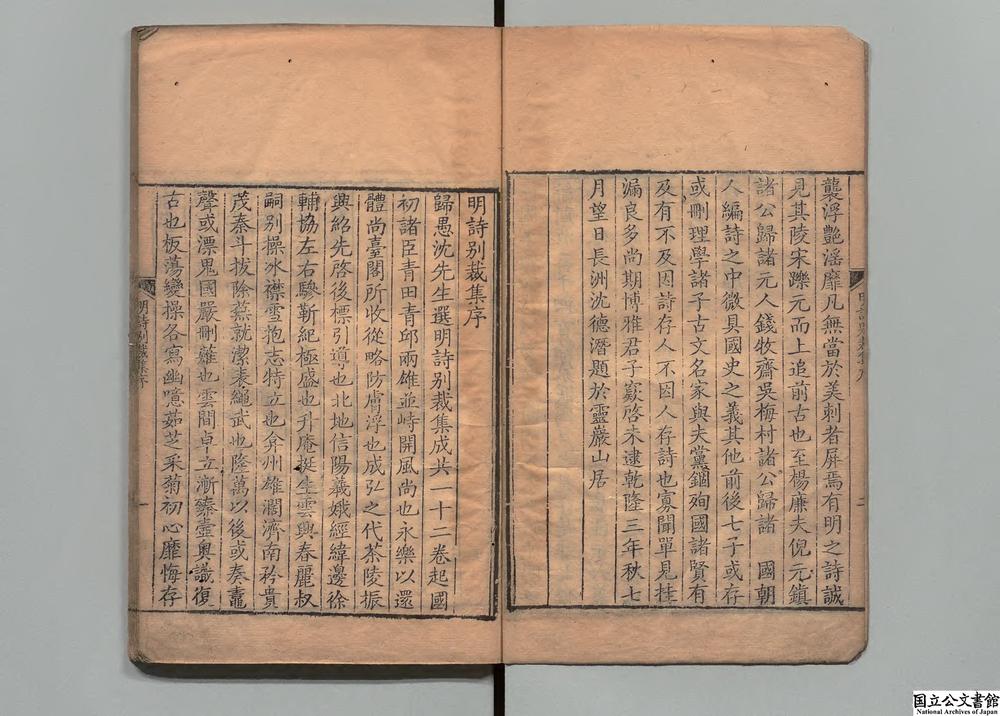 襲浮艷淫靡凡無當於美刺者屏焉有明之詩誠
見其陵宋躒元而上追前古也至楊廉夫倪元鎮
諸公歸諸元人錢牧齋吳梅村諸公歸諸 國朝
人編詩之中微具國史之義其他前後七子或存
或刪理學諸子古文名家與夫黨錮殉國諸賢有
及有不及因詩存人不因人存詩也寡聞單見挂
漏良多尚期博雅君子窾啓未逮乾隆三年秋七
月望日長洲沈德潛題於靈巖山居
二
明詩別裁集序
歸愚沈先生選明詩別裁集成共一十二卷起國
初諸臣青田青邱兩雄並峙開風尚也永樂以還
體尚臺閣所收從略防膚浮也成弘之代茶陵振
興紹先啓後標引導也北地信陽羲娥經緯邊徐
輔協左右驂靳紀極盛也升庵挺生雲興春麗叔
嗣別操冰襟雪抱志特立也弇州雄濶濟南矜貴
茂秦斗拔除蕪就潔表繩武也隆萬以後或奏鼃
聲或漂鬼國嚴刪薙也雲間卓立漸臻壼奧識復
古也板蕩變操各寫幽噫茹芝采菊初心靡悔存
明詩別裁集序
一
国立公文書館
National Archives of Japan